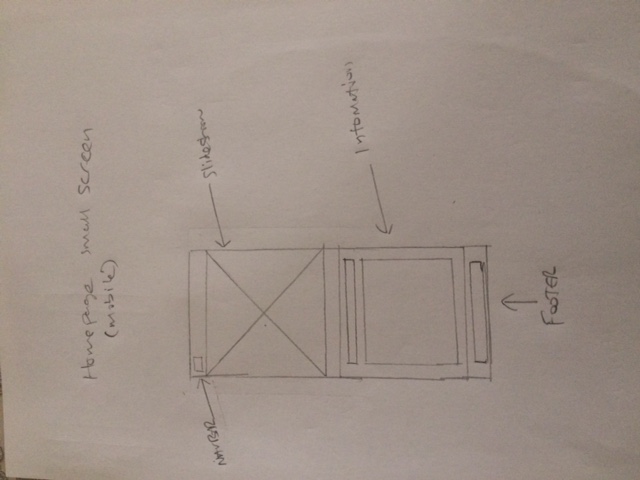 Homepage small screen
(mobile)
NAVBAR
Slideshow
Information
FOOTER